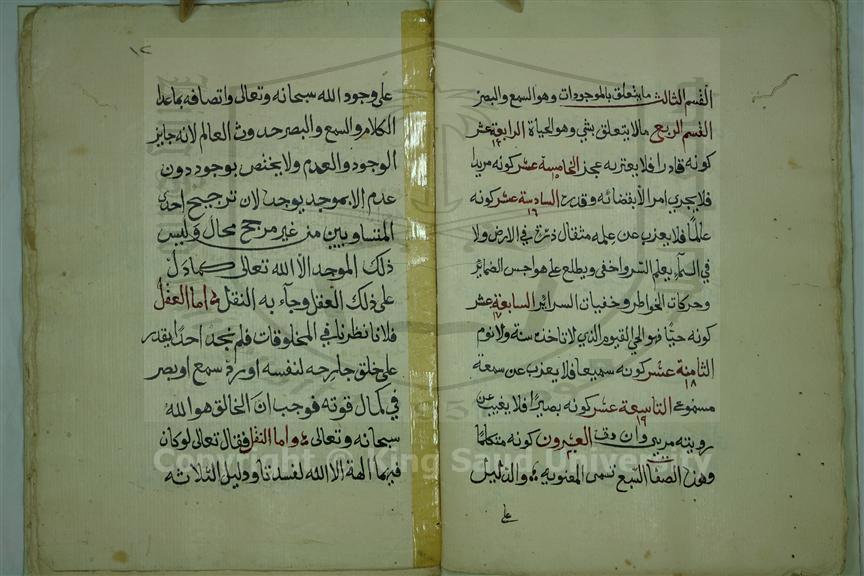 القسم الثالث ما يتعلق بالموجودات وهو السمع والبصر
القسم الربع مالا يتعلق بشي وهو الحياة الرابعة عشر
١٤
كونه قادرا فلا يعتريه عجز الخامسة عشر كونه مريدا
١٥
فلا يجري امر الا بقضائه وقدره السادسة عشر كونه
١٦
عالما فلا يعزب عن علمه مثقال ذرة في الارض ولا
في السماء يعلم السر واخفى ويطلع على هواجس الضمائر
وحركات الخواطر وخفيات السرائر السابعة عشر
١٧
كونه حيا فهو الحي القيوم الذي لا تاخذه سنة ولا نوم
الثامنة عشر كونه سميعا فلا يعزب عن سمعه
١٨
مسموع التاسعة عشر كونه بصيرا فلا يغيب عن
١٩
رويته مريي وان دق العشرون كونه متكلما
وهذه الصفات السبع تسمى المعنوية والدليل
على
١٢
على وجود الله سبحانه وتعالى واتصافه بماعدا
الكلام والسمع والبصر حدوث العالم لانه جايز
الوجود والعدم ولا يختص بوجود دون
عدم الا بموجد يوجده لان ترجيح احدى
المتساويين من غير مرجح محال وليس
ذلك الموجد الا الله تعالى كما دل
على ذلك العقل وجآء به النقل اما العقل
فلانا نظرنا في المخلوقات فلم نجد احدا يقدر
على خلق جارحه لنفسه او رد سمع او بصر
في كمال قوته فوجب ان الخالق هو الله
سبحانه وتعالى واما النقل فقال تعالى لو كان
فيهما الهة الا الله لفسدتا ودليل الثلاثه
Copyright © King Saud University